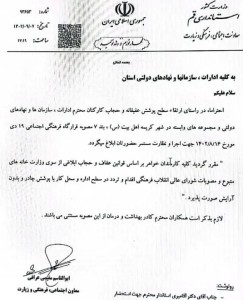 وزارت کشور
استانداری قم
معاونت اجتماعی، فرهنگی و زیارت
جمهوری اسلامی ایران
شماره :
تاریخ :
به کلیه ادارات ، سازمانها و نهادهای دولتی استان
سلام علیکم
احتراما، در راستای ارتقاء سطح پوشش عفیفانه و حجاب کارکنان محترم ادارات ، سازمان ها و نهادهای
دولتی و مجموعه های وابسته در شهر کریمه اهل بیت (س) ، بند ۷ مصوبه قرارگاه فرهنگی اجتماعی ۱۹ دی
مورخ ۱۴۰۲/۸/۱۶ جهت اجرا و نظارت مستمر حضورتان ابلاغ میگردد.
" مقرر گردید کلیه کارمندان خواهر بر اساس قوانین عفاف و حجاب ابلاغی از سوی وزارت خانه های
متبوع و مصوبات شورای عالی انقلاب فرهنگی اقدام و تردد در سطح اداره و محل کار با پوشش چادر و بدون
آرایش صورت پذیرد. "
لازم بذکر است همکاران محترم کادر بهداشت و درمان از این مصوبه مستثنی می باشند.
ابوالقاسم مقیمی عراقی
معاون اجتماعی، فرهنگی و زیارت
رونوشت:
جناب آقای دکتر استاندار محترم جهت استحضار